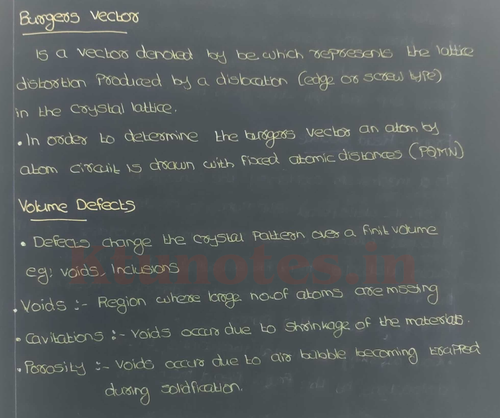 Burgers Vector
Is a vector denoted by be, which represents the lattice
distortion produced by a dislocation (edge or screw type)
in the crystal lattice.
• In order to determine the burgers vector an atom by
atom circuit is drawn with fixed atomic distances (PQMN)
Volume Defects
• Defects change the crystal pattern over a finit volume
eg: voids, Inclusions
Ktunotes.in
• Voids :- Region where large no. of atoms are missing
• Cavitations :- Voids occur due to shrinkage of the materials.
• Porosity :- Voids occur due to air bubble becoming trapped
during solidification.